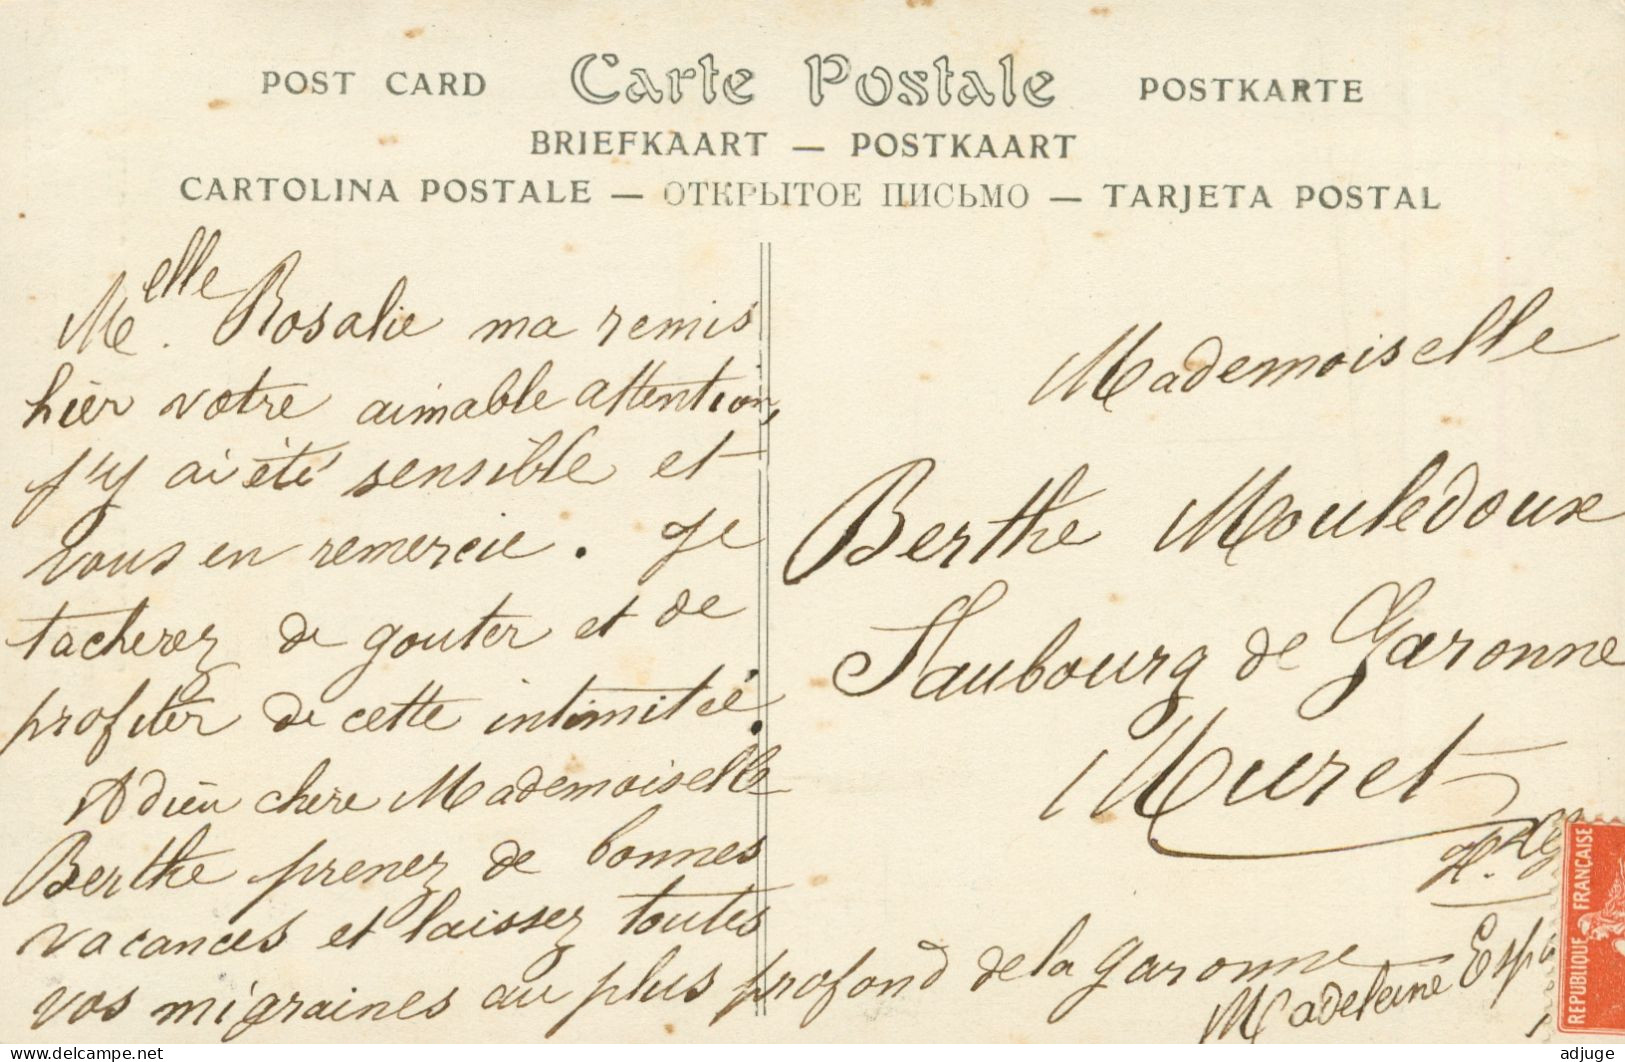 POST CARD Carte Postale POSTKARTE
BRIEFKAART — POSTKAART
CARTOLINA POSTALE — ОТКРЫТОЕ ПИСЬМО — TARJETA POSTAL
Melle. Rosalie ma remis
hier votre aimable attention,
j'y ai été sensible et
vous en remercie. Je
tacherez de gouter et de
profiter de cette intimitié.
Adieu chère Mademoiselle
Berthe prenez de bonnes
vacances et laissez toutes
vos migraines au plus profond de la Garonne
Madeleine
Mademoiselle
Berthe Mouledoux
Faubourg de Garonne
Muret
REPUBLIQUE FRANÇAISE
www.delcampe.net
adjuge